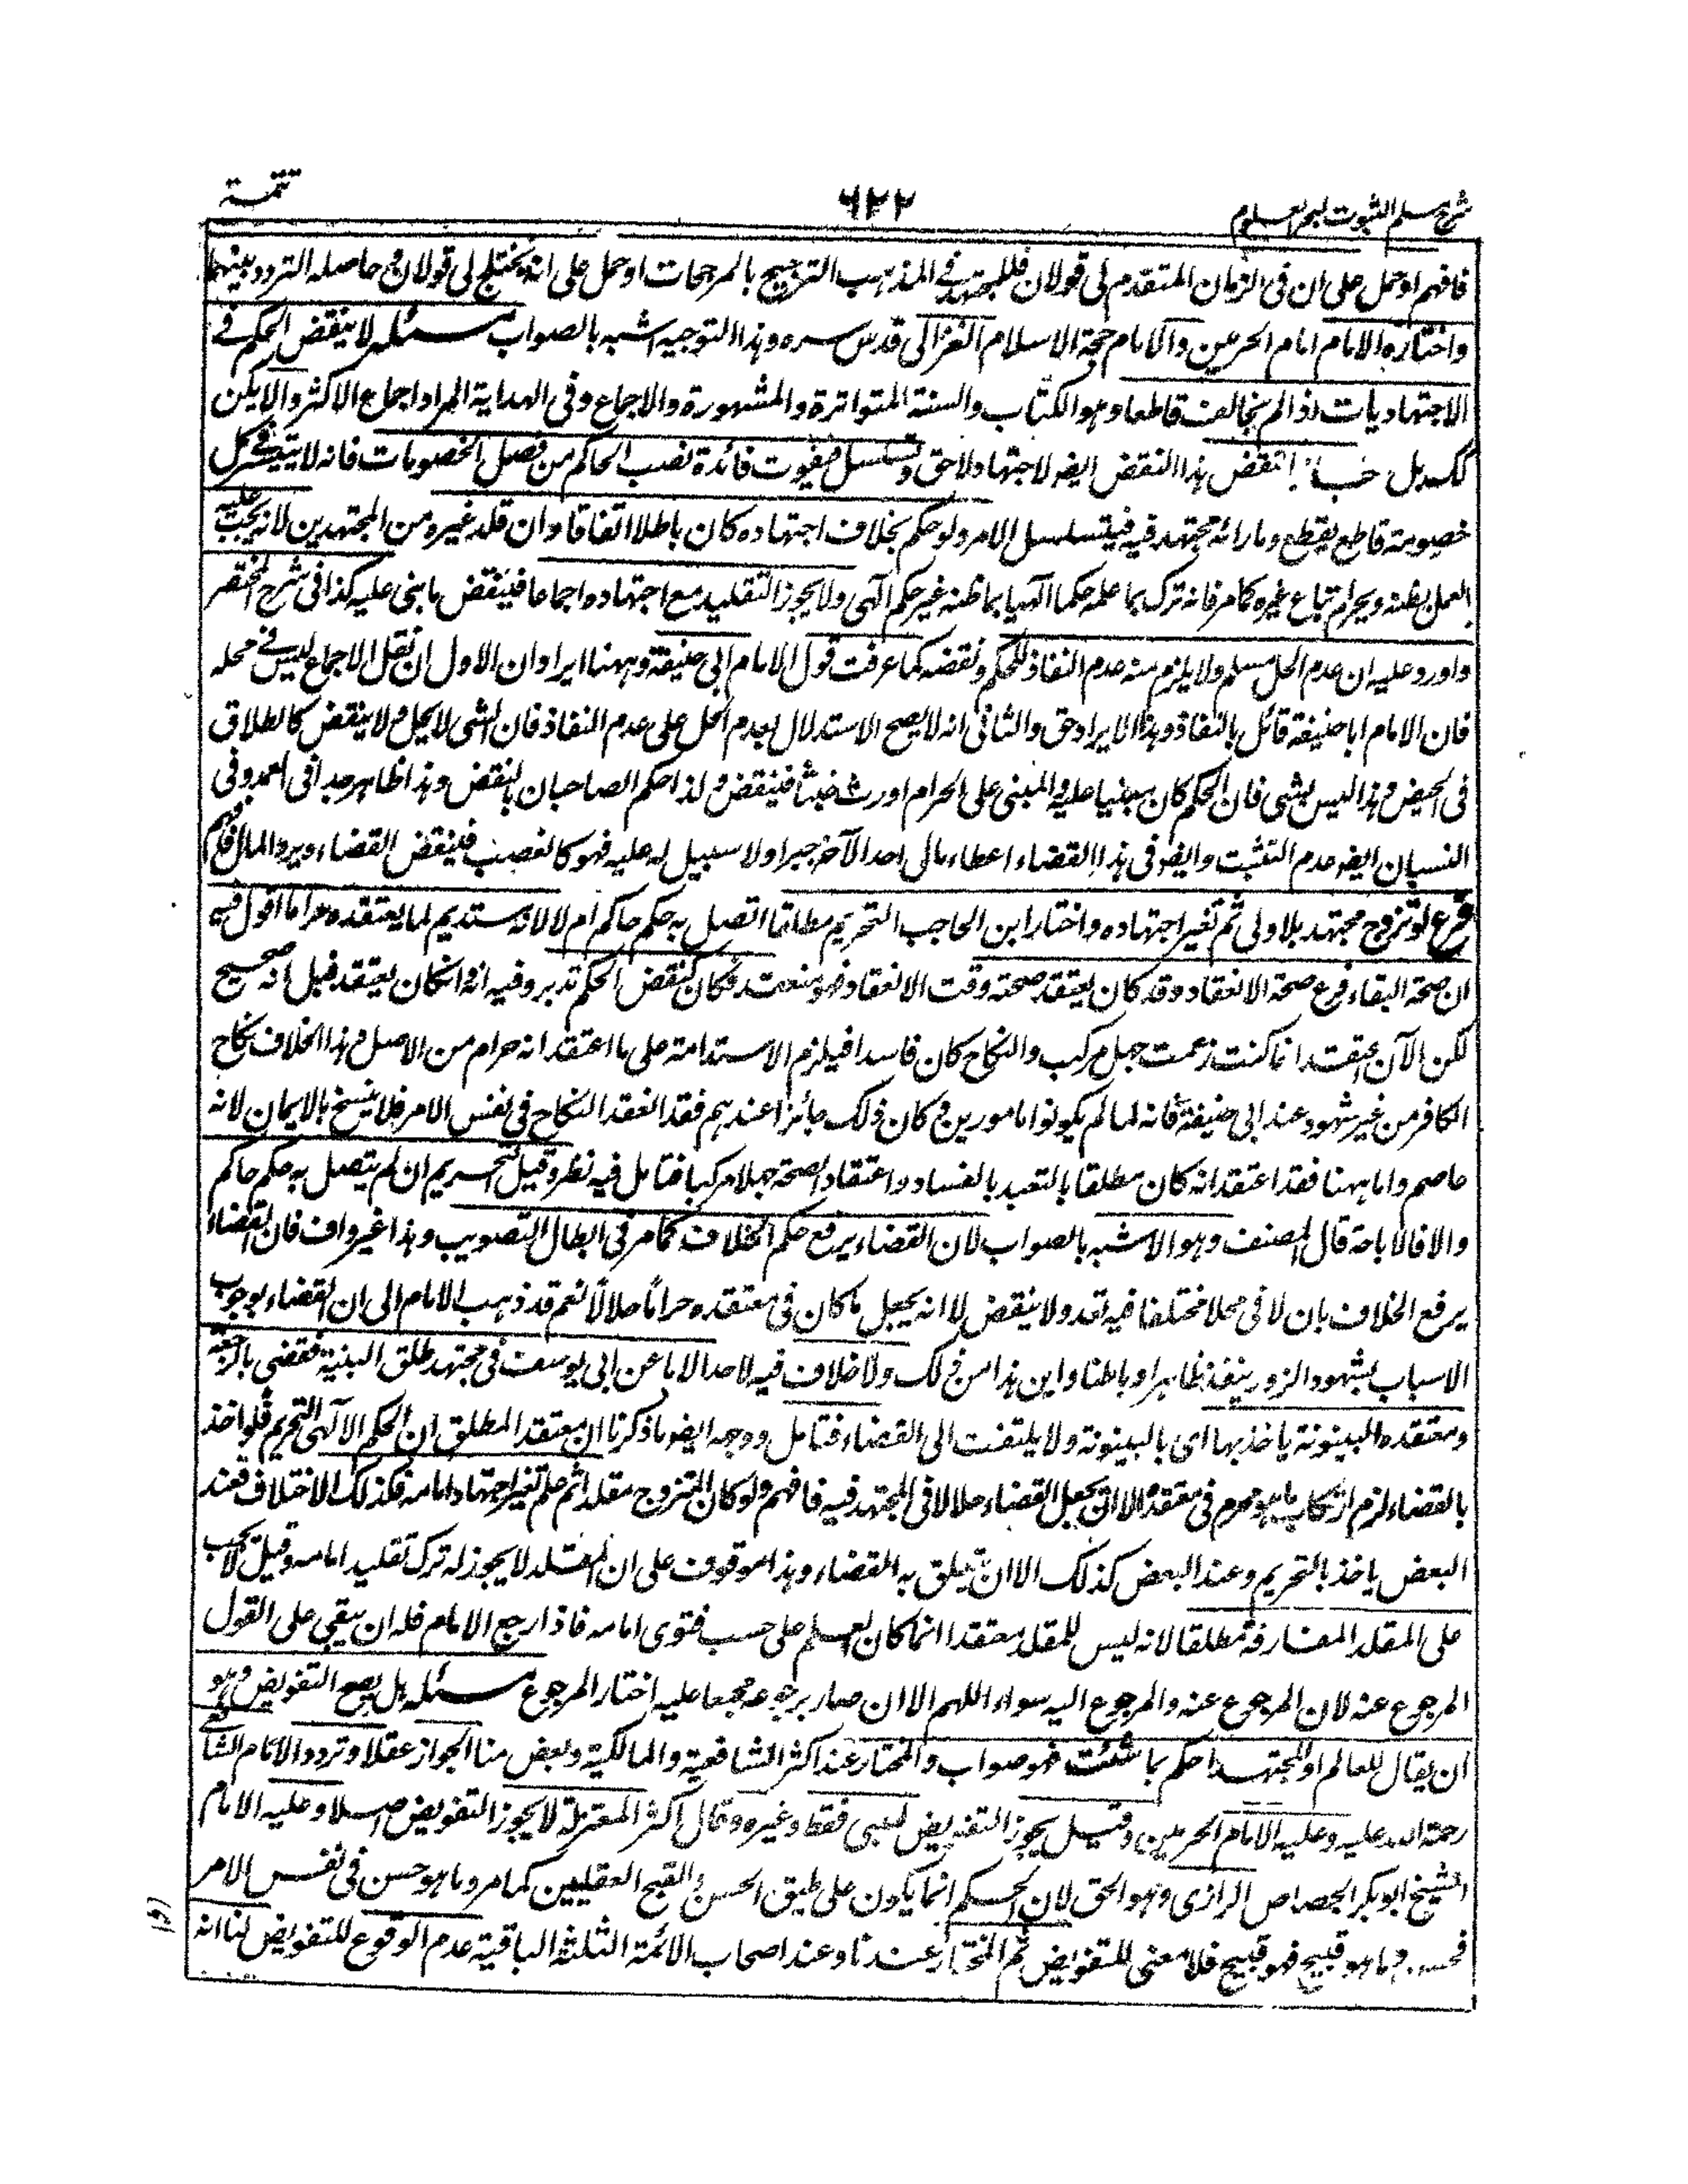 شرح مسلم الثبوت لبحر العلوم
٦٢٢
تتمة
فافهم او حمل على ان فى الزمان المتقدم لى قولان فللمجتهد فى المذهب الترجيح بالمرجحات او حمل على انه يختلج لى قولان فح حاصله التردد بينهما
واختاره الامام امام الحرمين والامام حجة الاسلام الغزالى قدس سره وهذا التوجيه اشبه بالصواب مسئله لا ينقض الحكم فى
الاجتهاديات اذا لم يخالف قاطعا وهو الكتاب والسنة المتواترة والمشهورة والاجماع وفى الهداية المراد اجماع الاكثر والا يكن
كك بل انتقض هذا النقض ايضه لاجتهاد لاحق وتسلسل فيفوت فائدة نصب الحاكم من فصل الخصومات فانه لا يتيسر فى كل
خصومة قاطع يقطع وما رائه مجتهد فيه فيتسلسل الامر ولو حكم بخلاف اجتهاده كان باطلا اتفاقا وان قلد غيره من المجتهدين لانه يجب عليه
العمل بظنه ويحرم اتباع غيره كما مر فانه ترك بما علمه حكما آلهيا بما ظنه غير حكم آلهى ولا يجوز التقليد مع اجتهاده اجماعا فينقض ما بنى عليه كذا فى شرح المختصر
واورد عليه ان عدم الحل مسلم ولا يلزم منه عدم النفاذ للحكم ونقضه كما عرفت قول الامام ابى حنيفة وههنا ايرادان الاول ان نقل الاجماع ليس فى محله
فان الامام ابا حنيفة قائل بالنفاذ وهذا الايراد حق والثانى انه لا يصح الاستدلال بعدم الحل على عدم النفاذ فان الشى لا يحل ولا ينقض كالطلاق
فى الحيض وهذا ليس بشى فان الحكم كان مبنيا عليه والمبنى على الحرام اورث خبثا فينقض ولذا حكم الصاحبان بالنقض وهذا ظاهر جدا فى العمد وفى
النسيان ايضه عدم التثبت وايضه فى هذا القضاء اعطاء مالى احد الآخر جبرا ولا سبيل له عليه فهو كالغصب فلينقض القضاء ويرد المال فافهم
فرع لو تزوج مجتهد بلا ولى ثم تغير اجتهاده واختار ابن الحاجب التحريم مطلقا اتصل به حكم حاكم ام لا لانه مستديم لما يعتقده حراما اقول فيه
ان صحة البقاء فرع صحة الانعقاد وقد كان يعتقد صحته وقت الانعقاد فهو منعقد فكان كنقض الحكم تدبر وفيه انه وانكان يعتقد قبل انه صحيح
لكن الآن اعتقد انا كنت زعمت جهل مركب والنكاح كان فاسدا فيلزم الاستدامة على ما اعتقد انه حرام من الاصل وهذا بخلاف نكاح
الكافر من غير شهود عند ابى حنيفة فانه لما لم يكونوا مامورين ح كان ذلك جائزا عندهم فقد انعقد النكاح فى نفس الامر فلا ينسخ بالايمان لانه
عاصم واما ههنا فقد اعتقد انه كان مطلقا بالتعبد بالفساد واعتقاد الصحة جهلا مركبا فتامل فيه نظر وقيل التحريم ان لم يتصل به حكم حاكم
والا فالاباحة قال المصنف وهو الاشبه بالصواب لان القضاء يرفع حكم الخلاف كما مر فى ابطال التصويب وهذا غير واف فان القضاء
يرفع الخلاف بان لاقى محلا مختلفا فيه نفذ ولا ينقض لا انه يجعل ما كان فى معتقده حراما حلالا نعم قد ذهب الامام الى ان القضاء بوجوب
الاسباب بشهود الزور ينفذ ظاهرا وباطنا واين هذا من ذلك ولا خلاف فيه لاحد الا ما عن ابى يوسف فى مجتهد طلق البتة فقضى بالرجعة
ومعتقده البينونة ياخذ بها اى بالبينونة ولا يلتفت الى القضاء فتامل ووجهه ايضه ما ذكرنا ان معتقد المطلق ان الحكم الآلهى التحريم فلو اخذ
بالقضاء لزم ارتكاب ما هو محرم فى معتقده الا ان يجعل القضاء حلالا فى المجتهد فيه فافهم ولو كان المتزوج مقلدا ثم علم تغير اجتهاد امامه فكذلك الاختلاف فعند
البعض ياخذ بالتحريم وعند البعض كذلك الا ان يتعلق به القضاء وهذا موقوف على ان المقلد لا يجوز له ترك تقليد امامه وقيل لا يجب
على المقلد المفارقة مطلقا لانه ليس للمقلد معتقد انما كان العمل على حسب فتوى امامه فاذا رجع الامام فله ان يبقى على القول
المرجوع عنه لان المرجوع عنه والمرجوع اليه سواء اللهم الا ان صار برجوعه مجمعا عليه اختار المرجوع مسئله هل يصح التفويض وهو
ان يقال للعالم او المجتهد احكم بما شئت فهو صواب والمختار عند اكثر الشافعية والمالكية وبعض منا الجواز عقلا وتردد الامام الشافعى
رحمة الله عليه وعليه الامام الحرمين وقيل يجوز التفويض للنبى فقط وغيره وقال اكثر المعتزلة لا يجوز التفويض اصلا وعليه الامام
الشيخ ابو بكر الجصاص الرازى وهو الحق لان الحكم انما يكون على طبق الحسن والقبح العقليين كما مر وما هو حسن فى نفس الامر
فحسن وما هو قبيح فهو قبيح فلا معنى للتفويض ثم المختار عندنا وعند اصحاب الائمة الثلثة الباقية عدم الوقوع للتفويض لنا انه